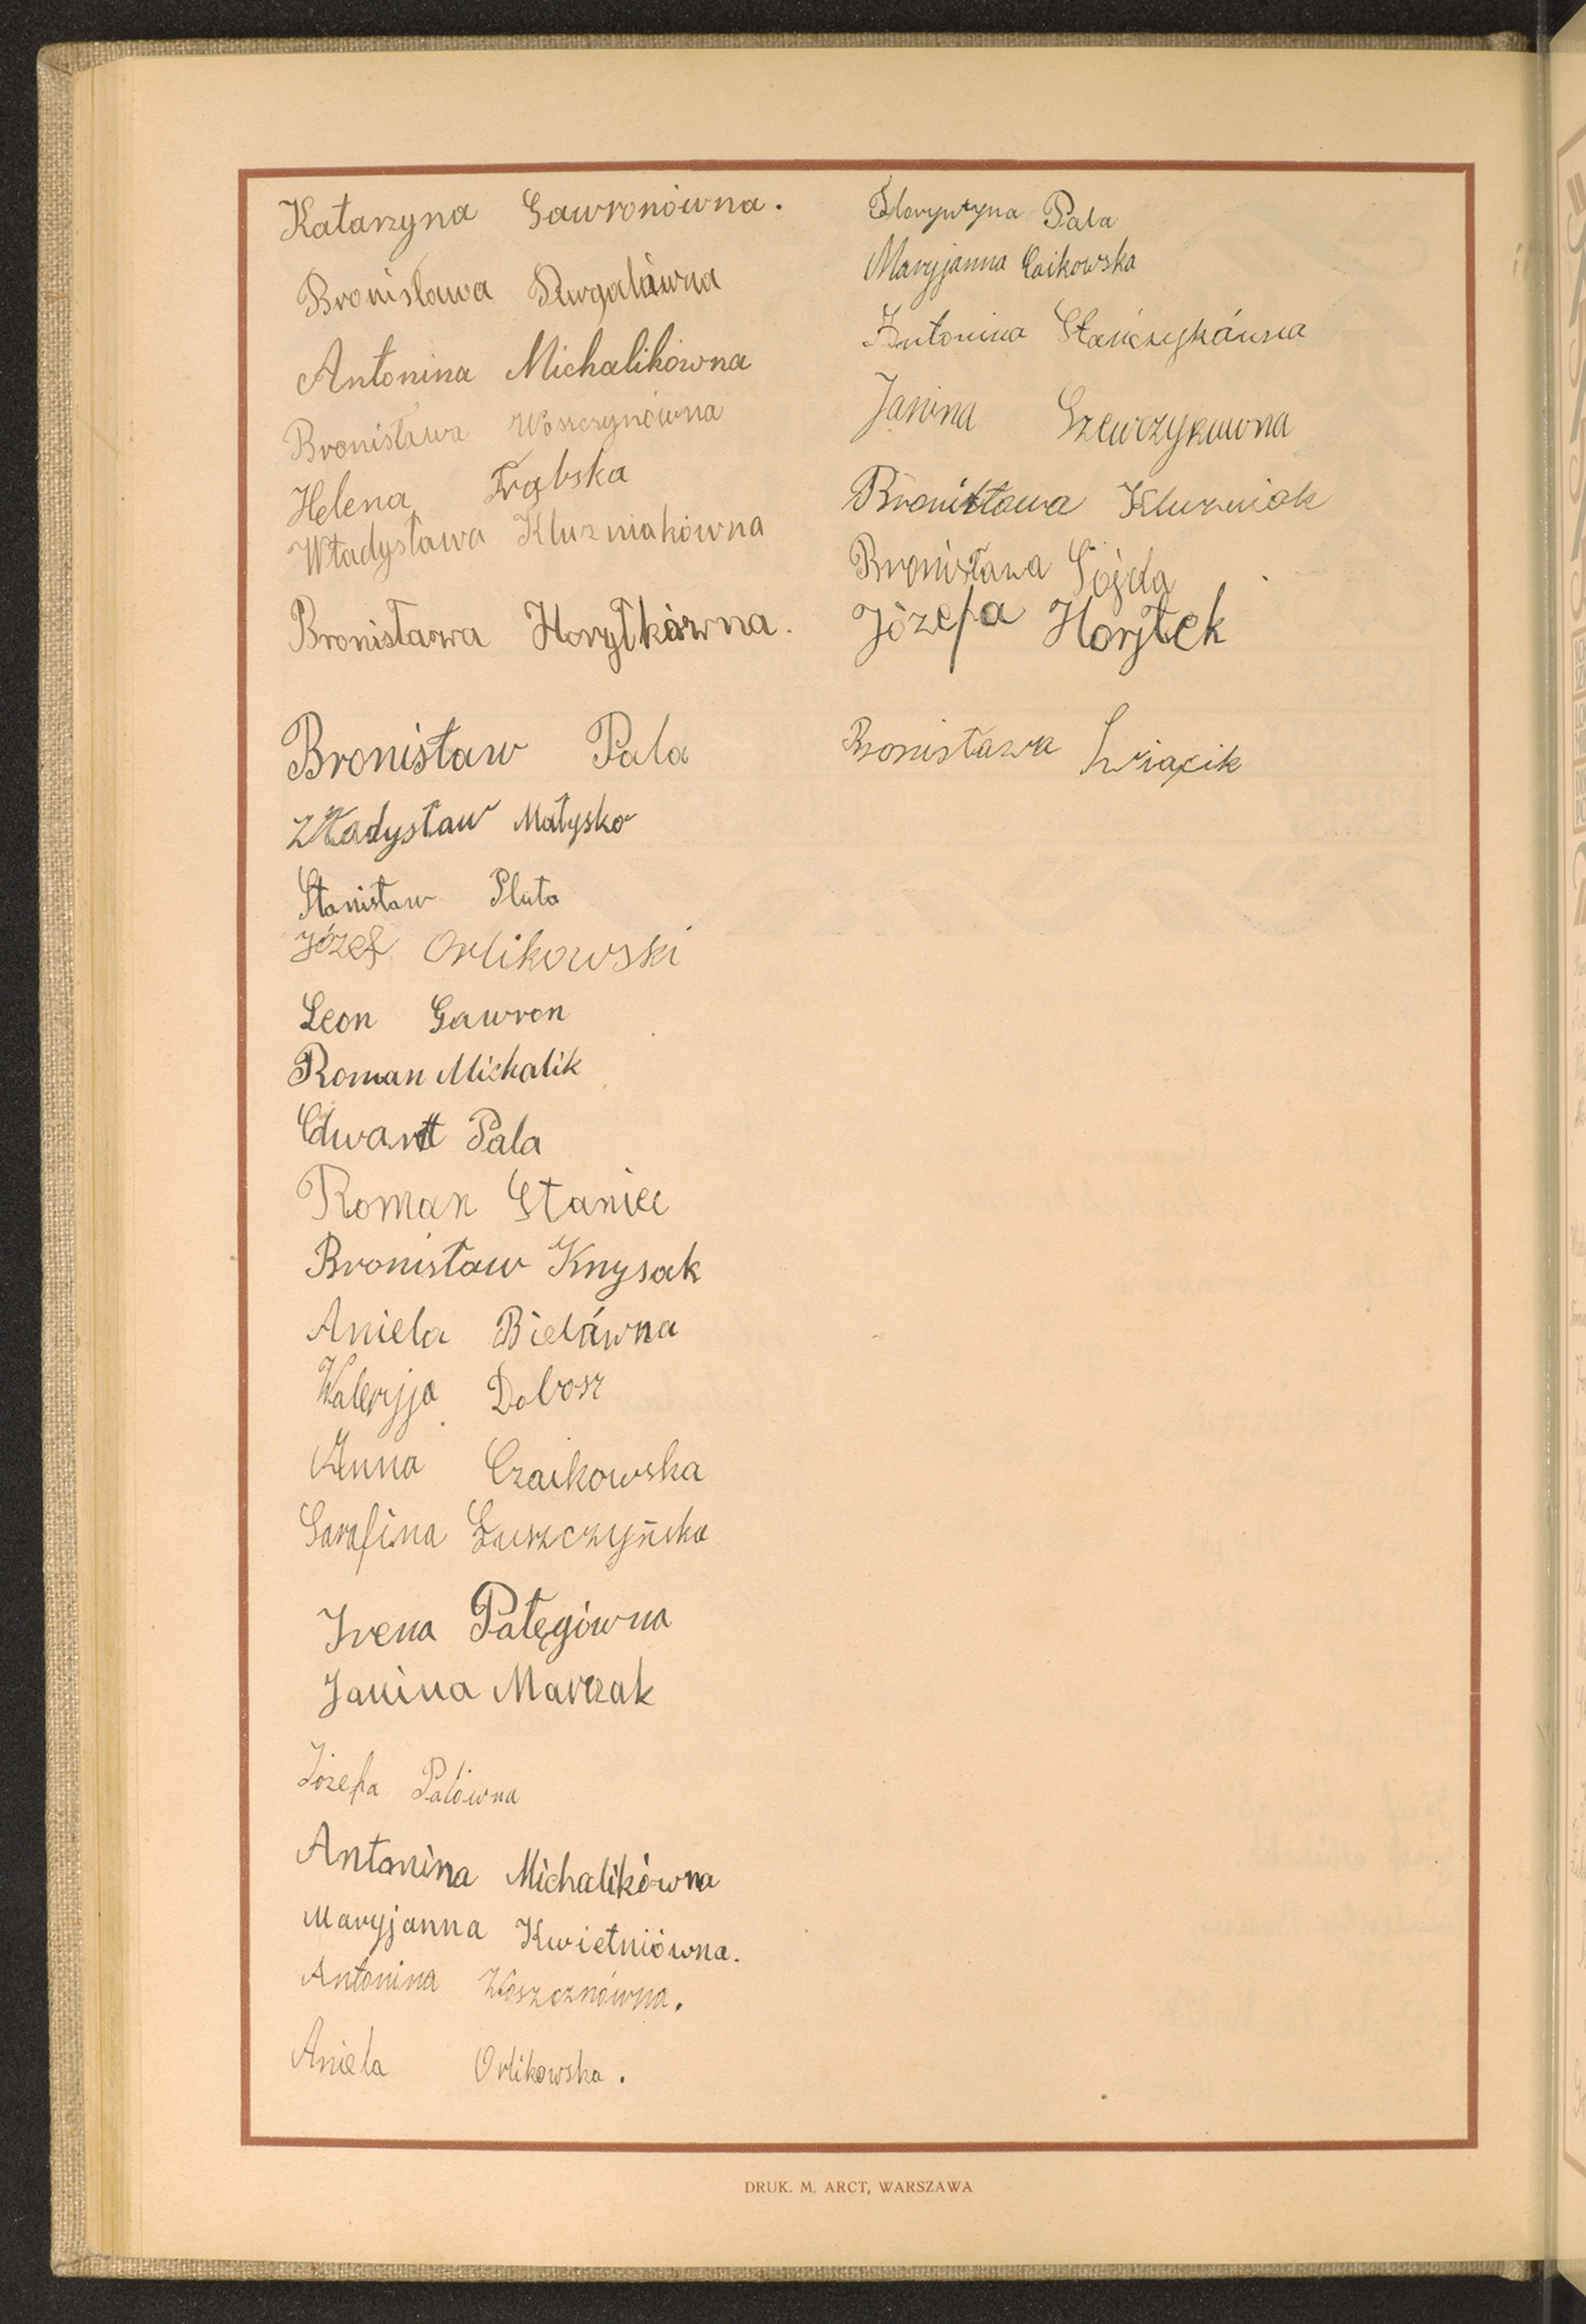 Katarzyna Gawronówna.
Bronisława
Antonina Michalikówna
Bronisława Woszczynówna
Helena Trąbska
Władysława Kluzniakówna
Bronisława Horytkówna.
Bronisław Pala
Władysław Matysko
Stanisław Pluta
Józef Orlikowski
Leon Gawron
Roman Michalik
Edwart Pala
Roman Staniec
Bronisław Knysak
Aniela Bielówna
Waleryja Dobosz
Anna Czaikowska
Sarafina Łuszczyńska
Irena Pałęgówna
Janina Marczak
Józefa Palówna
Antonina Michalikówna
Maryjanna Kwietniówna.
Antonina Woszcznówna.
Aniela Orlikowska.
Pala
Maryjanna Caikowska
Antonina Stańczykówna
Janina Szewczykuwna
Bronisława Kluzniak
Bronisława Sojda
Józefa Horytek
Bronisława
DRUK. M. ARCT, WARSZAWA